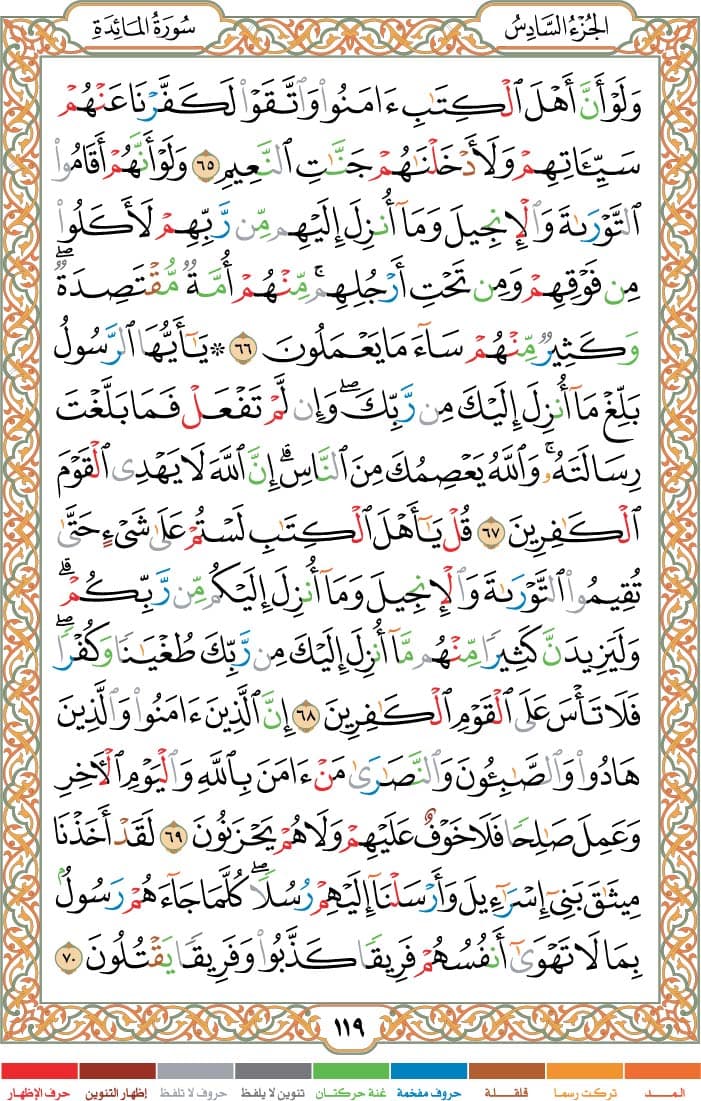 الجُزْءُ السَّادِسُ
سُورَةُ المَائِدَةِ
وَلَوْ أَنَّ أَهْلَ ٱلْكِتَٰبِ ءَامَنُوا۟ وَٱتَّقَوْا۟ لَكَفَّرْنَا عَنْهُمْ
سَيِّـَٔاتِهِمْ وَلَأَدْخَلْنَٰهُمْ جَنَّٰتِ ٱلنَّعِيمِ ٦٥ وَلَوْ أَنَّهُمْ أَقَامُوا۟
ٱلتَّوْرَىٰةَ وَٱلْإِنجِيلَ وَمَآ أُنزِلَ إِلَيْهِم مِّن رَّبِّهِمْ لَأَكَلُوا۟
مِن فَوْقِهِمْ وَمِن تَحْتِ أَرْجُلِهِم ۚ مِّنْهُمْ أُمَّةٌ مُّقْتَصِدَةٌ ۖ
وَكَثِيرٌ مِّنْهُمْ سَآءَ مَا يَعْمَلُونَ ٦٦ ۞ يَٰٓأَيُّهَا ٱلرَّسُولُ
بَلِّغْ مَآ أُنزِلَ إِلَيْكَ مِن رَّبِّكَ ۖ وَإِن لَّمْ تَفْعَلْ فَمَا بَلَّغْتَ
رِسَالَتَهُۥ ۚ وَٱللَّهُ يَعْصِمُكَ مِنَ ٱلنَّاسِ ۗ إِنَّ ٱللَّهَ لَا يَهْدِى ٱلْقَوْمَ
ٱلْكَٰفِرِينَ ٦٧ قُلْ يَٰٓأَهْلَ ٱلْكِتَٰبِ لَسْتُمْ عَلَىٰ شَىْءٍ حَتَّىٰ
تُقِيمُوا۟ ٱلتَّوْرَىٰةَ وَٱلْإِنجِيلَ وَمَآ أُنزِلَ إِلَيْكُم مِّن رَّبِّكُمْ ۗ
وَلَيَزِيدَنَّ كَثِيرًا مِّنْهُم مَّآ أُنزِلَ إِلَيْكَ مِن رَّبِّكَ طُغْيَٰنًا وَكُفْرًا ۖ
فَلَا تَأْسَ عَلَى ٱلْقَوْمِ ٱلْكَٰفِرِينَ ٦٨ إِنَّ ٱلَّذِينَ ءَامَنُوا۟ وَٱلَّذِينَ
هَادُوا۟ وَٱلصَّٰبِـُٔونَ وَٱلنَّصَٰرَىٰ مَنْ ءَامَنَ بِٱللَّهِ وَٱلْيَوْمِ ٱلْـَٔاخِرِ
وَعَمِلَ صَٰلِحًا فَلَا خَوْفٌ عَلَيْهِمْ وَلَا هُمْ يَحْزَنُونَ ٦٩ لَقَدْ أَخَذْنَا
مِيثَٰقَ بَنِىٓ إِسْرَٰٓءِيلَ وَأَرْسَلْنَآ إِلَيْهِمْ رُسُلًا ۖ كُلَّمَا جَآءَهُمْ رَسُولٌۢ
بِمَا لَا تَهْوَىٰٓ أَنفُسُهُمْ فَرِيقًا كَذَّبُوا۟ وَفَرِيقًا يَقْتُلُونَ ٧٠
١١٩
المـــد
تركت رسما
قلقلـة
حروف مفخمة
غنة حركتان
تنوين لا يلفظ
حروف لا تلفظ
إظهار التنوين
حرف الإظهار